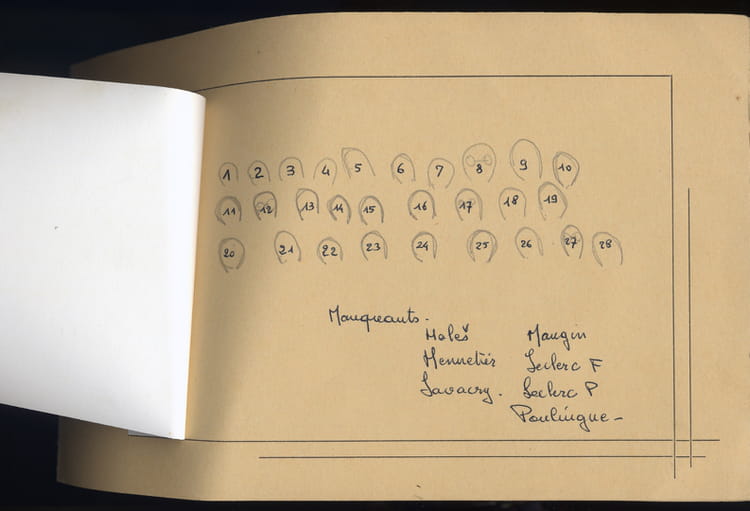 1 2 3 4 5 6 7 8 9 10
11 12 13 14 15 16 17 18 19
20 21 22 23 24 25 26 27 28
Manqueants.
Holeš Mangin
Mennetier Leclerc F
Savacry. Leclerc P
Poulingue-